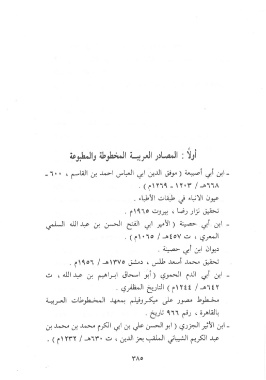 أولاً : المصادر العربية المخطوطة والمطبوعة
ـ ابن أبي أصيبعة ( موفق الدين ابي العباس احمد بن القاسم ، ٦٠٠ ـ
٦٦٨هـ / ١٢٠٣ - ١٢٦٩م ) .
عيون الانباء في طبقات الأطباء .
تحقيق نزار رضا ، بيروت ١٩٦٥م .
ـ ابن أبي حصينة ( الأمير ابي الفتح الحسن بن عبدالله السلمي
المعري ، ت ٤٥٧هـ / ١٠٦٥م ) .
ديوان ابن أبي حصينة .
تحقيق محمد أسعد طلس ، دمشق ١٣٧٥هـ / ١٩٥٦م .
ـ ابن أبي الدم الحموي ( أبو اسحاق ابراهيم بن عبدالله ، ت
٦٤٢هـ / ١٢٤٤م ) التاريخ المظفري .
مخطوط مصور على ميكروفيلم بمعهد المخطوطات العربية
بالقاهرة ، رقم ٩٦٦ تاريخ .
ـ ابن الأثير الجزري ( ابو الحسن علي بن ابي الكرم محمد بن محمد بن
عبد الكريم الشيباني الملقب بعز الدين ، ت ٦٣٠هـ / ١٢٣٢م ) .
٣٨٥